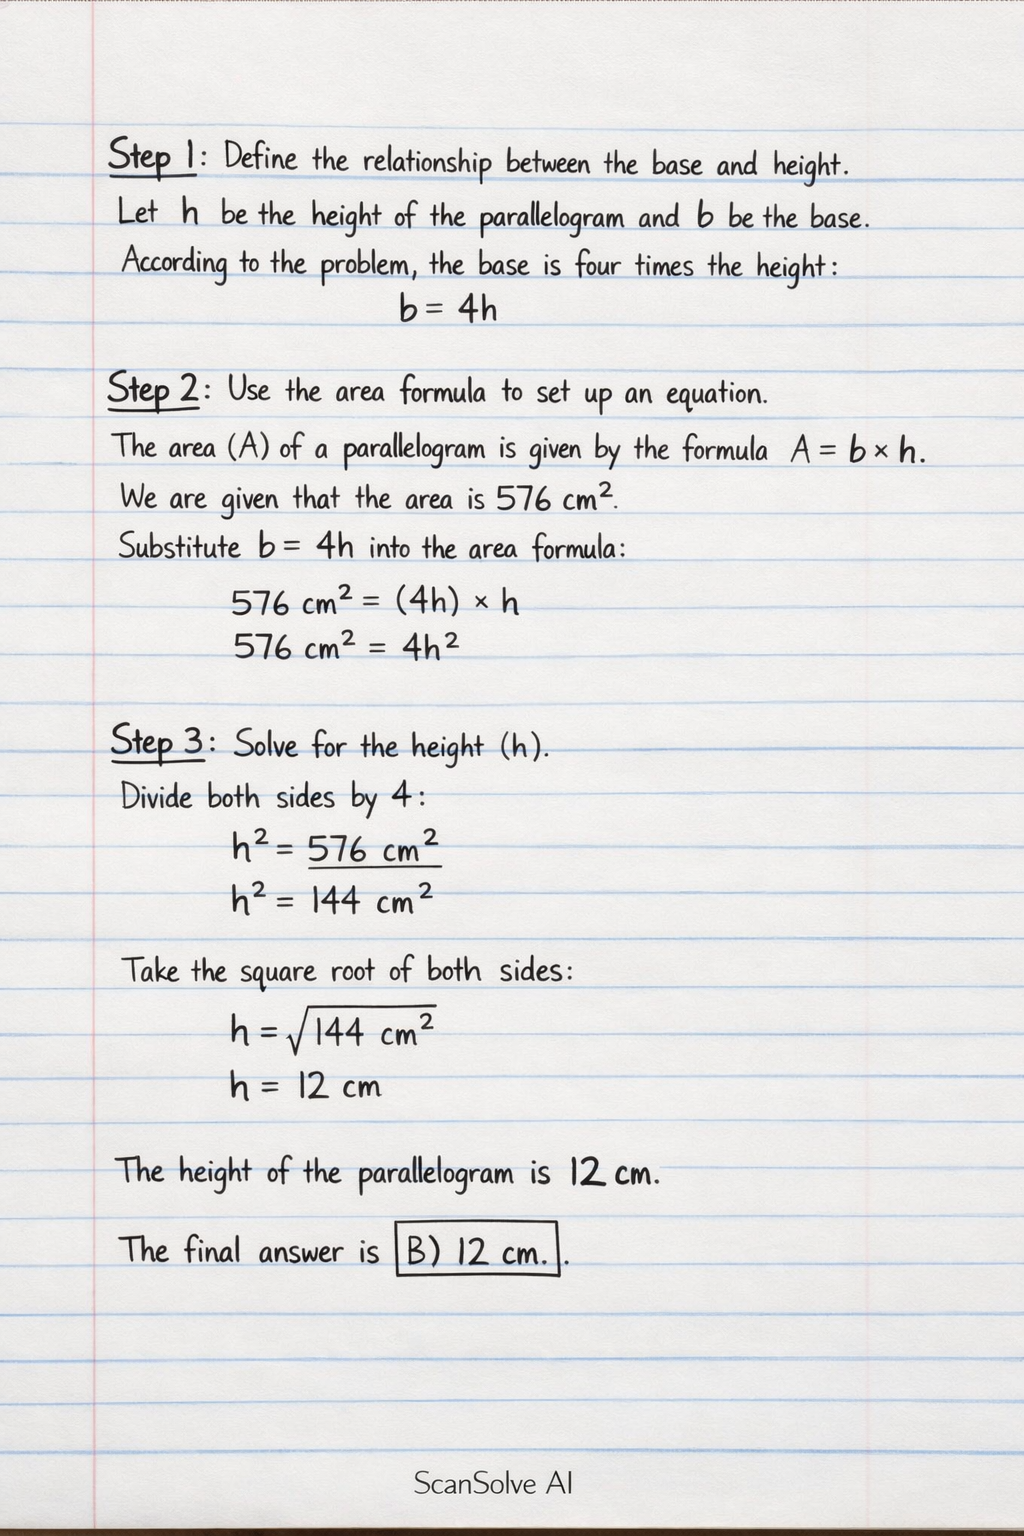 Step 1: Define the relationship between the base and height.
Let h be the height of the parallelogram and b be the base.
According to the problem, the base is four times the height:
b = 4h
Step 2: Use the area formula to set up an equation.
The area (A) of a parallelogram is given by the formula A = b × h.
We are given that the area is 576 cm².
Substitute b = 4h into the area formula:
576 cm² = (4h) × h
576 cm² = 4h²
Step 3: Solve for the height (h).
Divide both sides by 4:
h² = 576 cm²
h² = 144 cm²
Take the square root of both sides:
h = √144 cm²
h = 12 cm
The height of the parallelogram is 12 cm.
The final answer is B) 12 cm..
ScanSolve AI